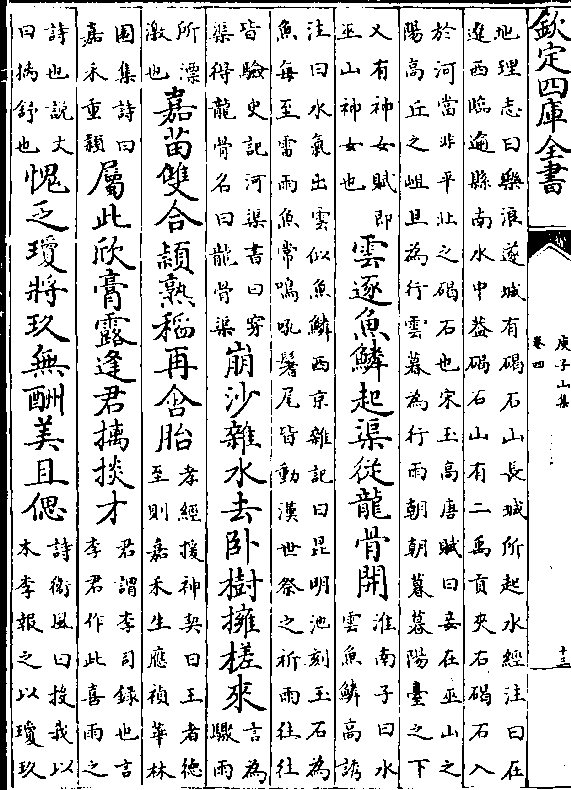 欽定四庫全書
庾子山集
卷四
十三
地理志曰樂浪遂城有碣石山長城所起水經注曰在
遼西臨渝縣南水中蓋碣石山有二禹貢夾右碣石入
於河當非平壯之碣石也宋玉高唐賦曰妾在巫山之
陽高丘之岨旦為行雲暮為行雨朝朝暮暮陽臺之下
又有神女賦即
巫山神女也
雲逐魚鱗起渠從龍骨開
淮南子曰水
雲魚鱗高誘
注曰水氣出雲似魚鱗西京雜記曰昆明池刻玉石為
魚每至雷雨魚常鳴吼鬐尾皆動漢世祭之祈雨往往
皆驗史記河渠書曰穿
渠得龍骨名曰龍骨渠
崩沙雜水去卧樹擁槎來
言為
驟雨
所漂
激也
嘉苗雙合頴熟稻再含胎
孝經援神契曰王者德
至則嘉禾生應禎華林
園集詩曰
嘉禾重頴
屬此欣膏露逢君摛掞才
君謂李司錄也言
李君作此喜雨之
詩也説文
曰摛舒也
愧乏瓊將玖無酬美且偲
詩衛風曰投我以
木李報之以瓊玖